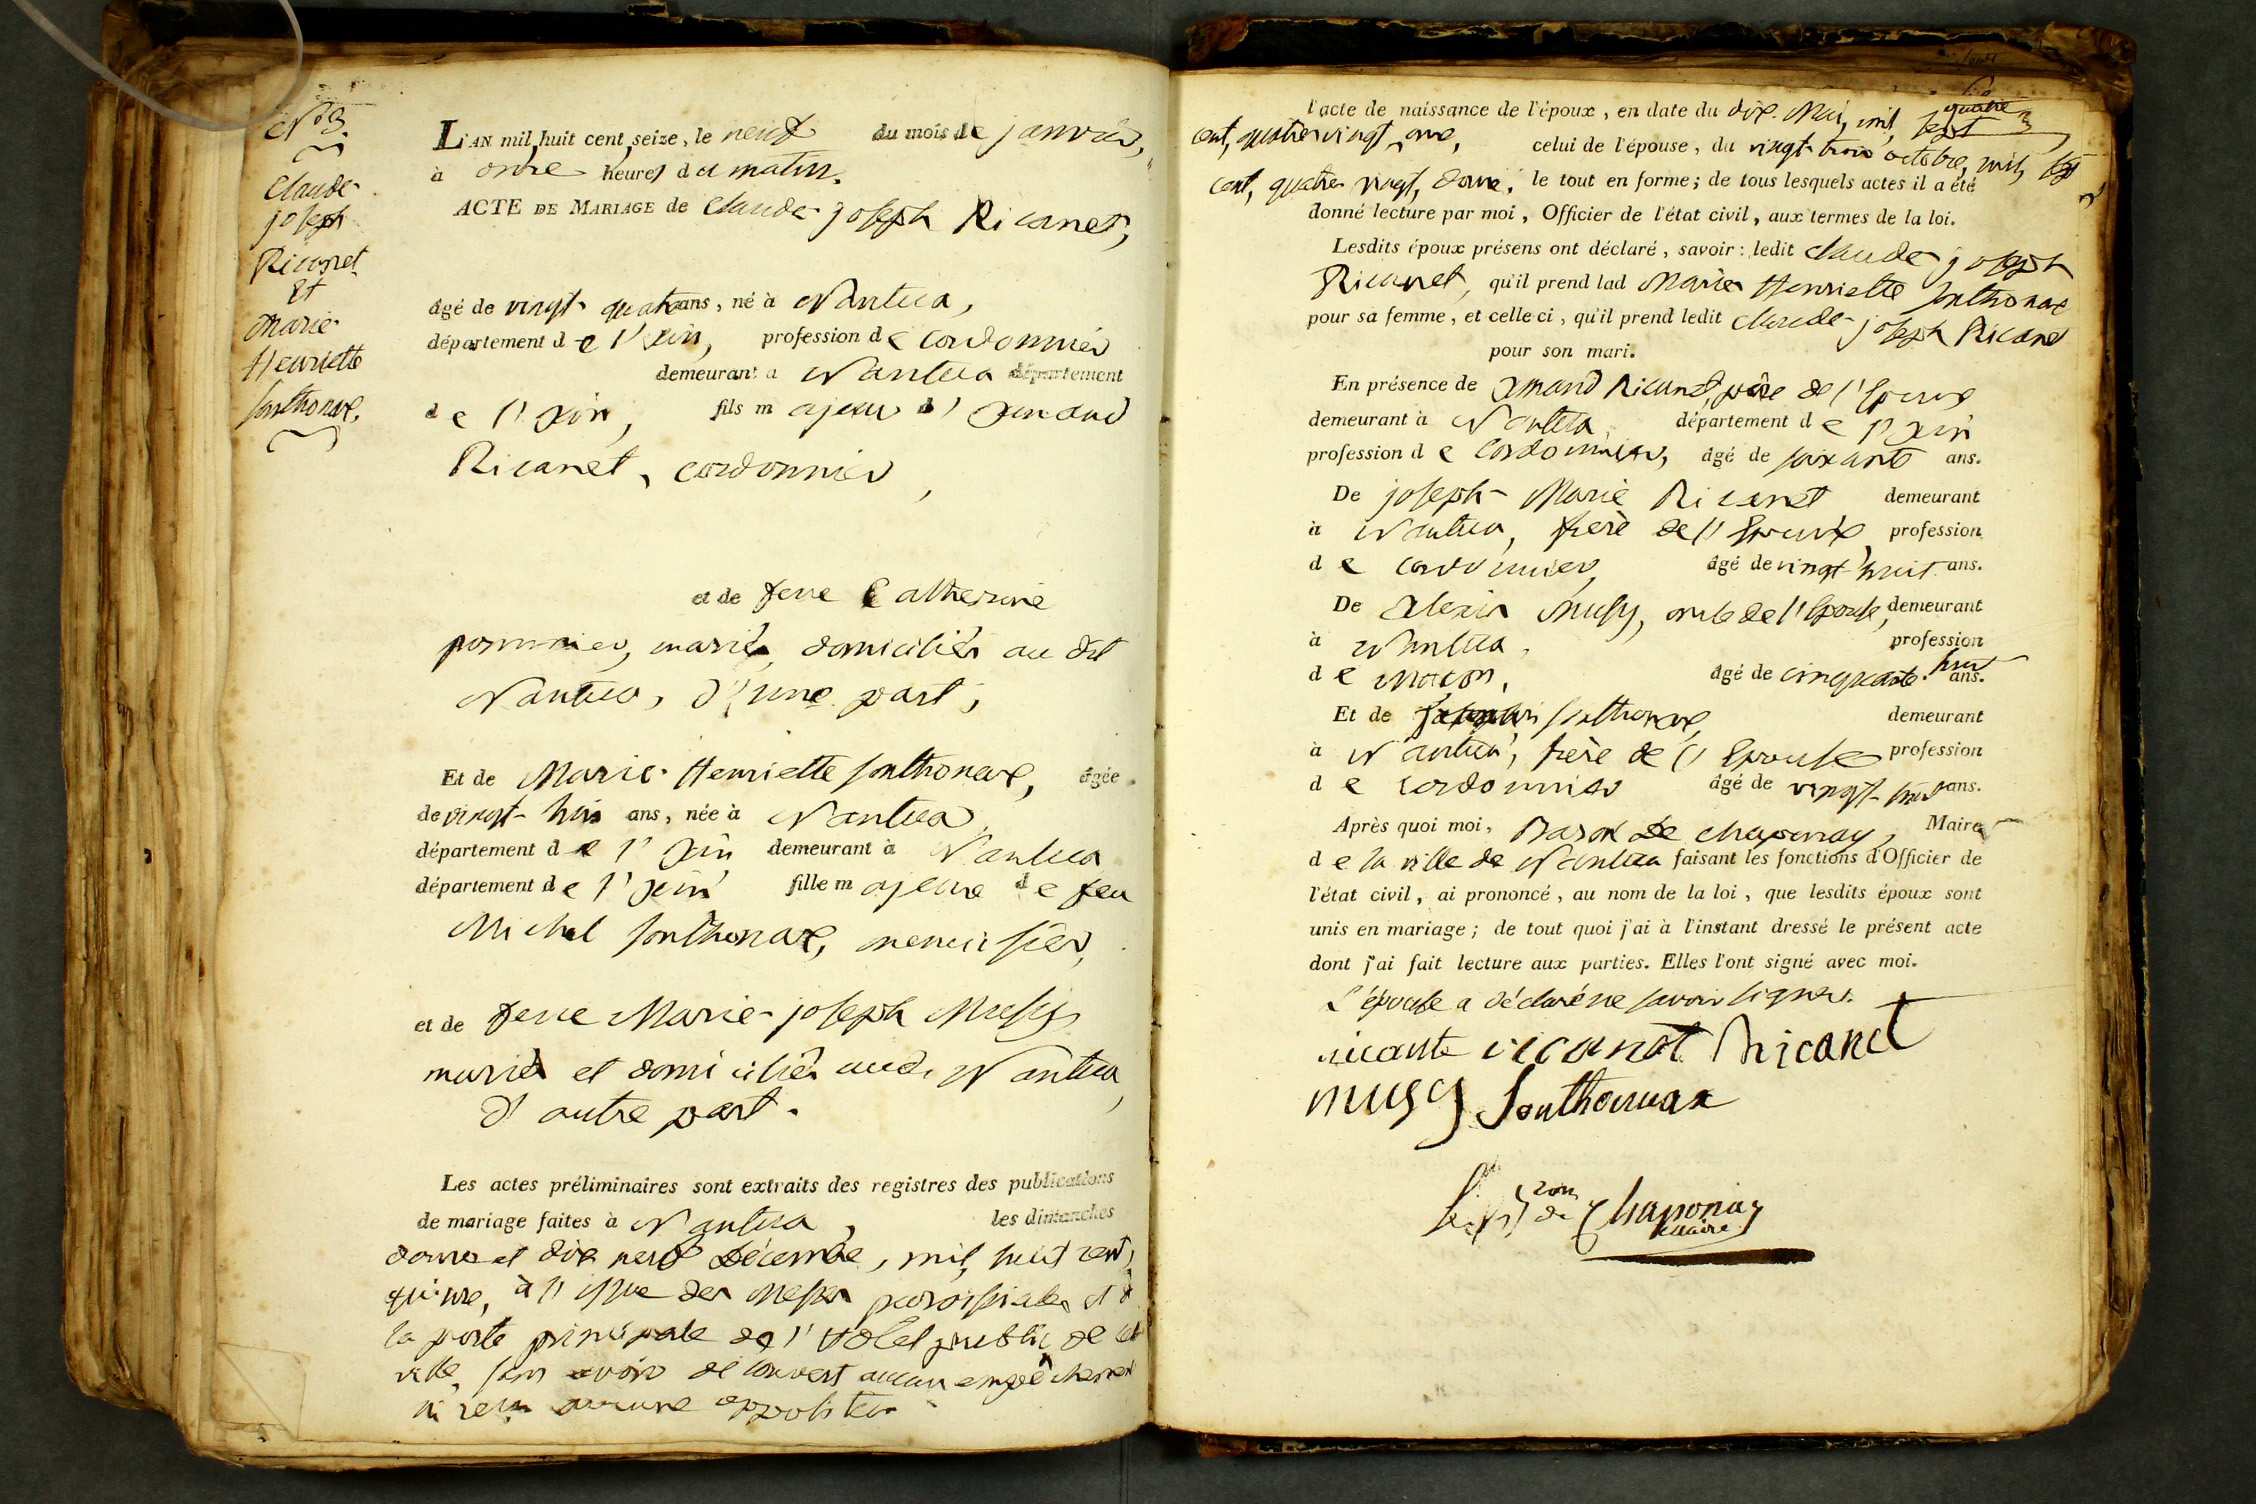 N° 3.
Claude
joseph
Ricanet
Et
marie
Henriette
sonthonax.
L'AN mil huit cent seize, le neuf du mois de janvier,
à onze heures du matin.
ACTE DE MARIAGE de Claude joseph Ricanet,
âgé de vingt quatre ans, né à Nantua,
département de l'ain, profession de cordonnier
demeurant à Nantua département
de l'ain, fils majeur d'amand
Ricanet, cordonnier,
et de feue Catherine
pommier, mariés, domiciliés au dit
Nantua, d'une part,
Et de Marie Henriette sonthonax, âgée
de vingt trois ans, née à Nantua
département de l'ain demeurant à Nantua
département de l'ain fille majeure de feu
Michel sonthonax, menuisier,
et de feue Marie joseph Musy
mariés et domiciliés aud. Nantua,
d'autre part.
Les actes préliminaires sont extraits des registres des publications
de mariage faites à Nantua, les dimanches
douze et dix neuf Décembre, mil, huit cent,
quinze, à l'issue des Messes paroissiales et à
la porte principale de l'hotel public de cette
ville, sans avoir découvert aucun empêchement
ni reçu aucune opposition
l'acte de naissance de l'époux, en date du dix Mai, mil, sept
cent, quatre vingt, onze, celui de l'épouse, du vingt trois octobre, mil, sept
cent, quatre vingt, douze, le tout en forme; de tous lesquels actes il a été
donné lecture par moi, Officier de l'état civil, aux termes de la loi.
Lesdits époux présens ont déclaré, savoir: ledit Claude joseph
Ricanet, qu'il prend lad Marie Henriette sonthonax
pour sa femme, et celle ci, qu'il prend ledit Claude joseph Ricanet
pour son mari.
En présence de amand Ricanet, père de l'Epoux
demeurant à Nantua, département de l'ain
profession de Cordonnier, âgé de soixante ans.
De joseph Marie Ricanet demeurant
à Nantua, frère de l'Epoux, profession
de cordonnier, âgé de vingt huit ans.
De alexis Musy, oncle de l'Epouse, demeurant
à Nantua, profession
de Maçon, âgé de cinquante huit ans.
Et de sonthonax, demeurant
à Nantua, frère de l'Epouse profession
de cordonnier âgé de vingt huit ans.
Après quoi moi, Baron de chaponay, Maire
de la ville de Nantua faisant les fonctions d'Officier de
l'état civil, ai prononcé, au nom de la loi, que lesdits époux sont
unis en mariage; de tout quoi j'ai à l'instant dressé le présent acte
dont j'ai fait lecture aux parties. Elles l'ont signé avec moi.
L'épouse a déclaré ne savoir signer.
ricanot Ricanet
musy Sonthonnax
Le Bon de Chaponay
maire